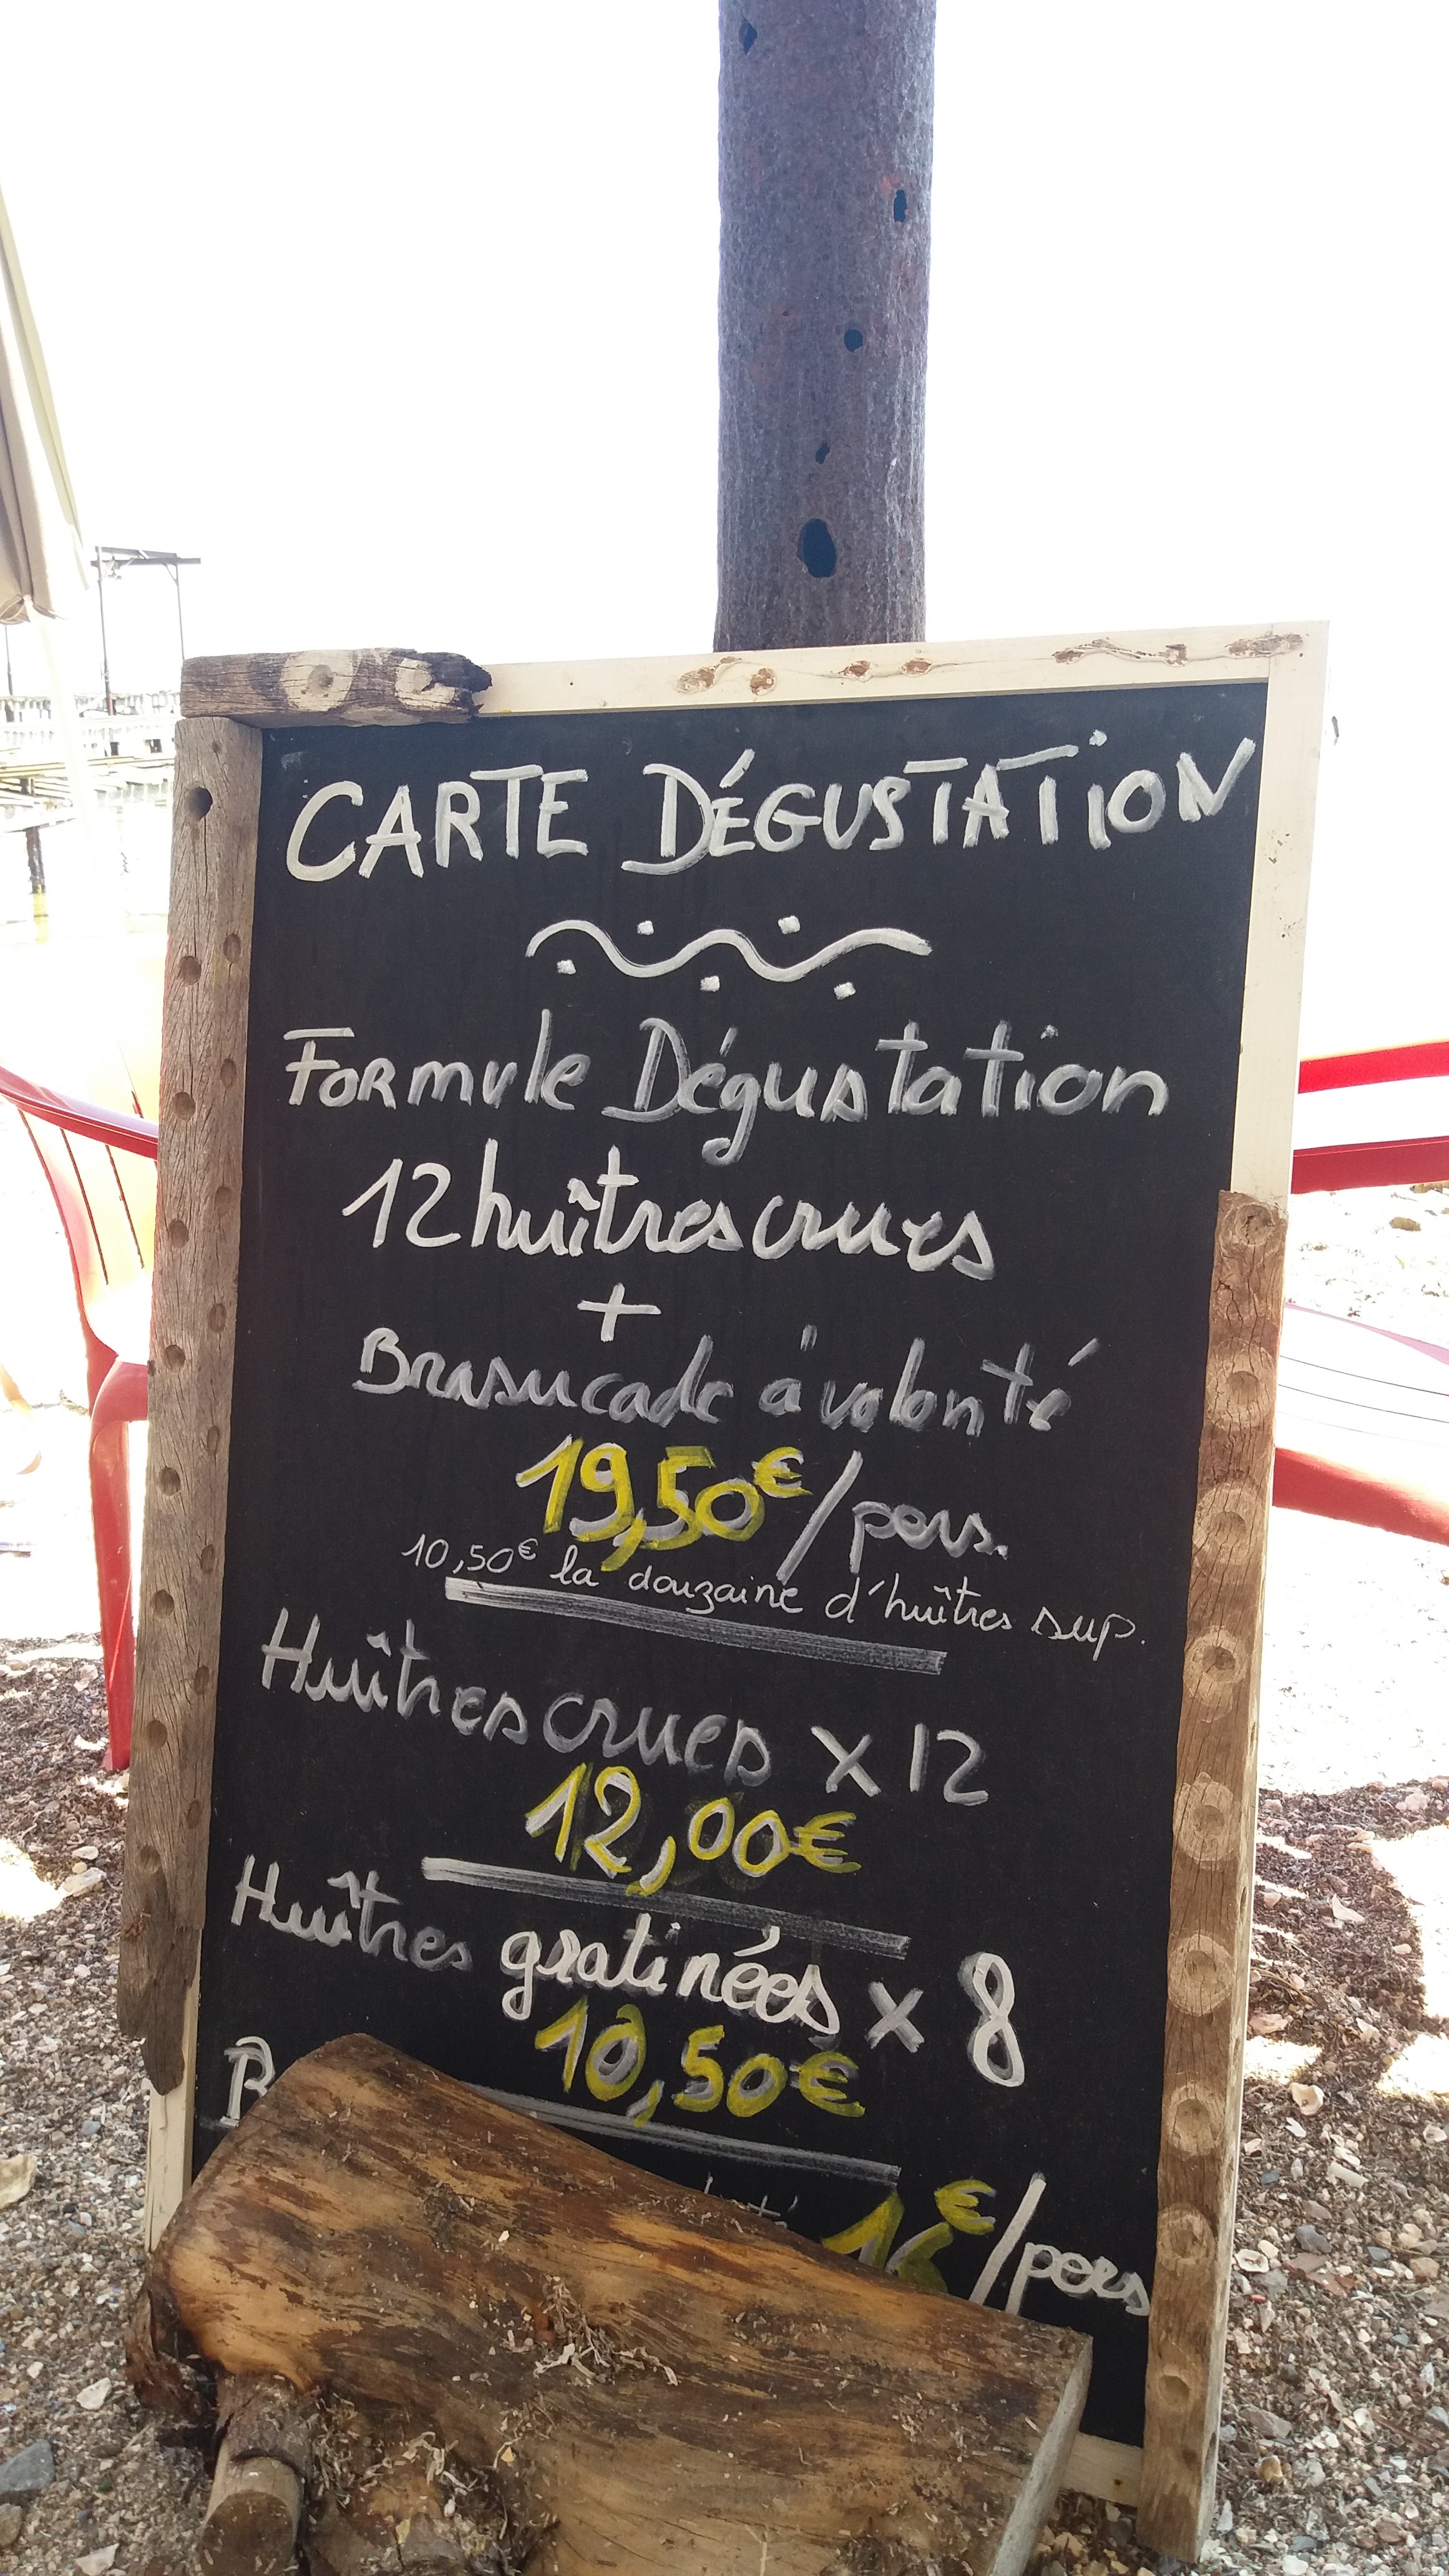 CARTE DÉGUSTATION
Formule Dégustation
12 huîtres crues
+
Brasucade à volonté
19,50€/pers.
10,50€ la douzaine d'huîtres sup.
Huîtres crues x 12
12,00€
Huîtres gratinées x 8
10,50€
€/pers